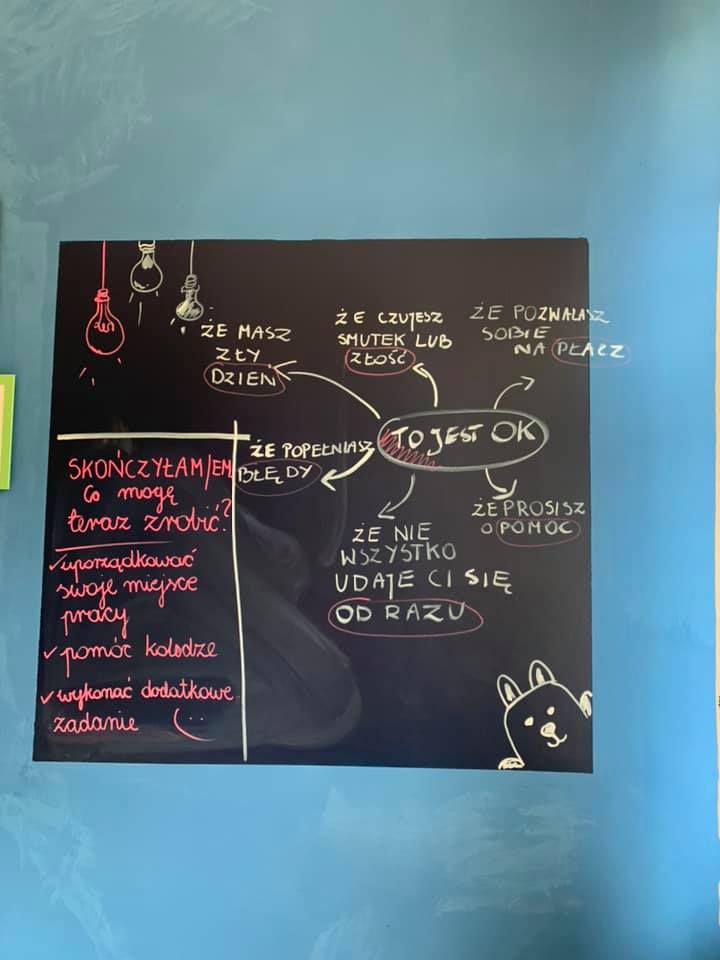 ŻE MASZ
ZŁY
DZIEŃ
ŻE CZUJESZ
SMUTEK LUB
ZŁOŚĆ
ŻE POZWALASZ
SOBIE
NA PŁACZ
TO JEST OK
ŻE POPEŁNIASZ
BŁĘDY
ŻE NIE
WSZYSTKO
UDAJE CI SIĘ
OD RAZU
ŻE PROSISZ
O POMOC
SKOŃCZYŁAM/EM
Co mogę
teraz zrobić?
✓ uporządkować
swoje miejsce
pracy
✓ pomóc koledze
✓ wykonać dodatkowe
zadanie